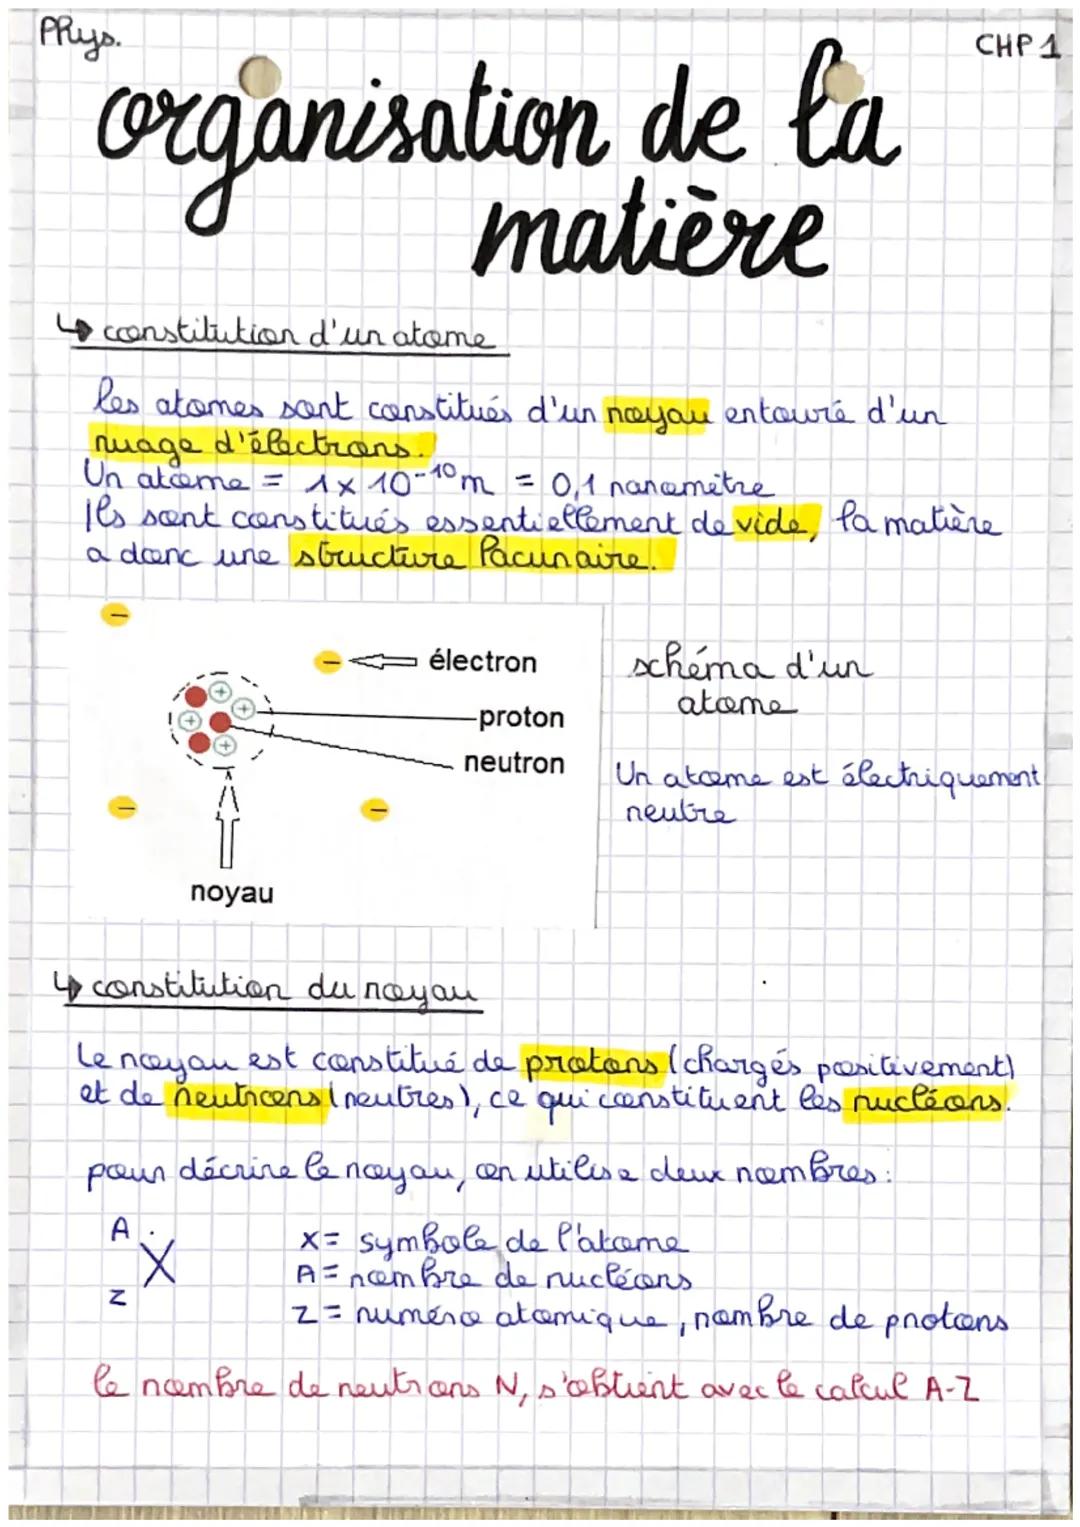 Phys.
CHP 1
organisation de la
matière
↳ constitution d'un atome
les atomes sont constitués d'un noyau entouré d'un
nuage d'électrons.
Un atome = 1 x 10⁻¹⁰ m = 0,1 nanomètre
Ils sont constitués essentiellement de vide, la matière
a donc une structure lacunaire.
électron
proton
neutron
noyau
schéma d'un
atome
Un atome est électriquement
neutre
↳ constitution du noyau
Le noyau est constitué de protons (chargés positivement)
et de neutrons (neutres), ce qui constituent les nucléons.
pour décrire le noyau, on utilise deux nombres :
A
X
Z
X = symbole de l'atome
A = nombre de nucléons
Z = numéro atomique, nombre de protons
le nombre de neutrons N, s'obtient avec le calcul A-Z